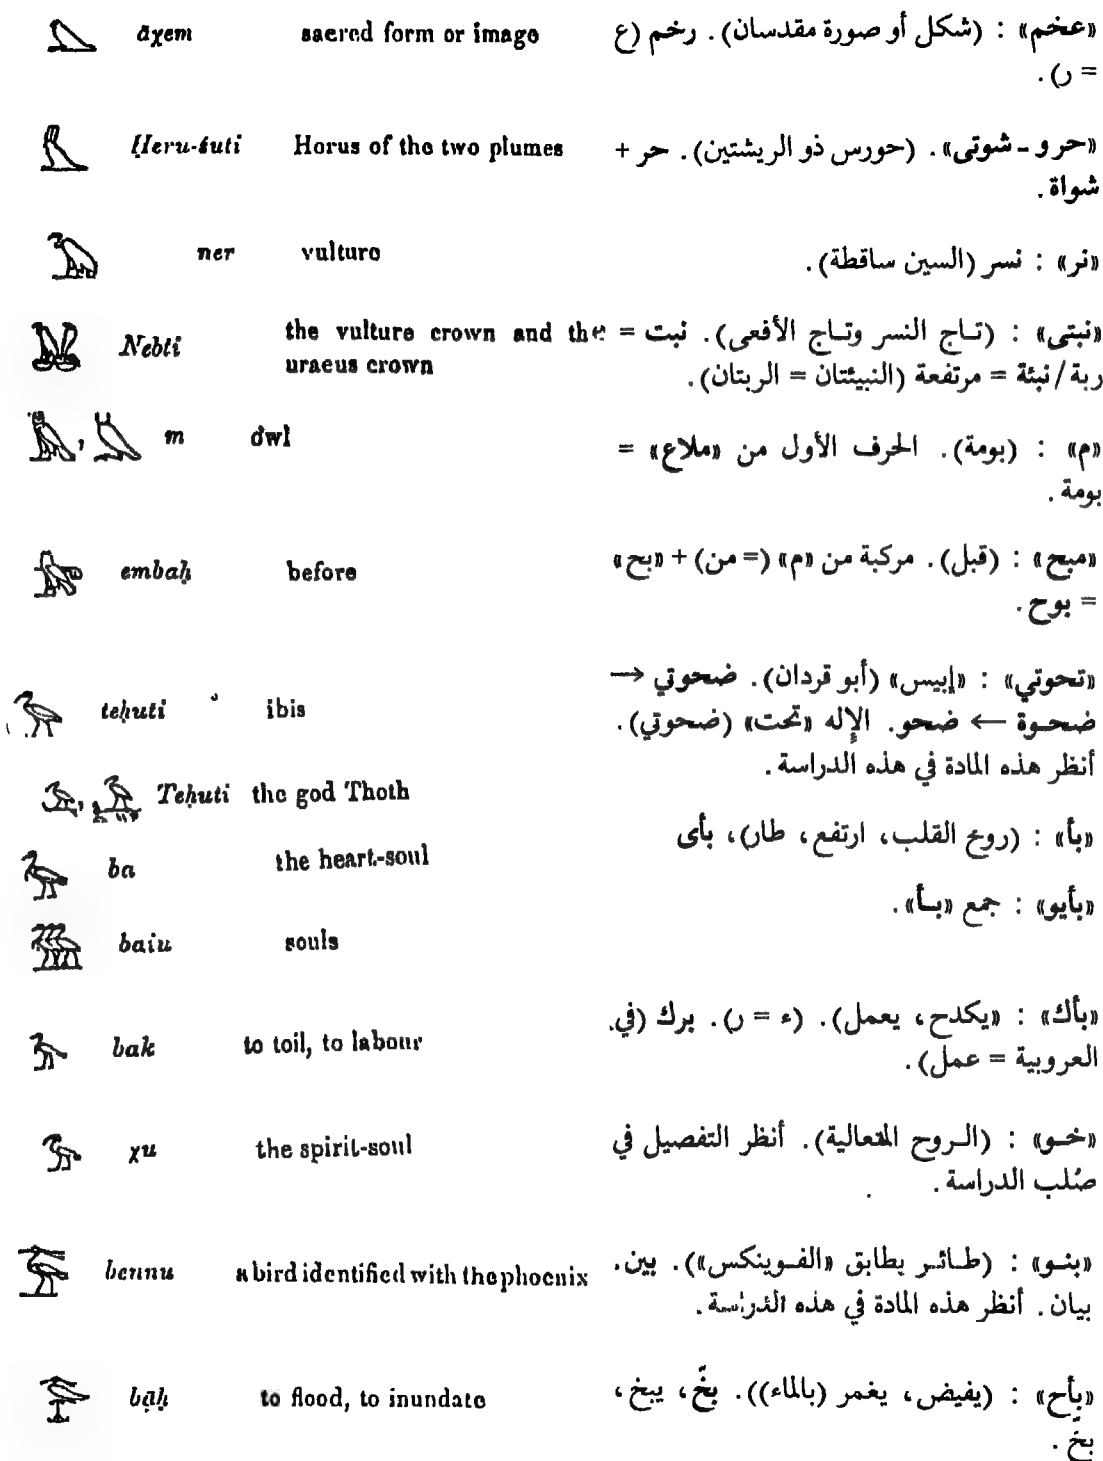 āχem sacred form or image «عخم» : (شكل أو صورة مقدسان). رخم (ع
= ر).
Ḥeru-śuti Horus of the two plumes «حرو - شوتى». (حورس ذو الريشتين). حر +
شواة.
ner vulture «نر» : نسر (السين ساقطة).
Nebti the vulture crown and the «نبتى» : (تاج النسر وتاج الأفعى). نبت =
uraeus crown ربة/نبئة = مرتفعة (النبيئتان = الربتان).
m owl «م» : (بومة). الحرف الأول من «ملاع» =
بومة.
embaḥ before «مبح» : (قبل). مركبة من «م» (= من) + «بح»
= بوح.
teḥuti ibis «تحوتي» : «إيبيس» (أبو قردان). ضحوتي ←
ضحوة ← ضحو. الإله «تحت» (ضحوتي).
أنظر هذه المادة في هذه الدراسة.
Teḥuti the god Thoth
ba the heart-soul «بأ» : (روح القلب، ارتفع، طار)، بأى
baiu souls «بأيو» : جمع «بأ».
bak to toil, to labour «بأك» : «يكدح، يعمل). (ء = ر). برك (في
العروبية = عمل).
χu the spirit-soul «خو» : (الروح المتعالية). أنظر التفصيل في
صُلب الدراسة.
bennu a bird identified with the phoenix «بنو» : (طائر يطابق «الفوينكس»). بين.
بيان. أنظر هذه المادة في هذه الدراسة.
bạḥ to flood, to inundate «بأح» : (يفيض، يغمر (بالماء)). بخّ، يبخ،
بخّ.